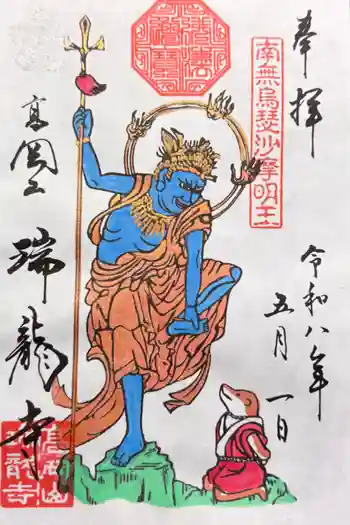 奉拝
南無烏瑟沙摩明王
令和八年
五月一日
高岡山
瑞龍寺